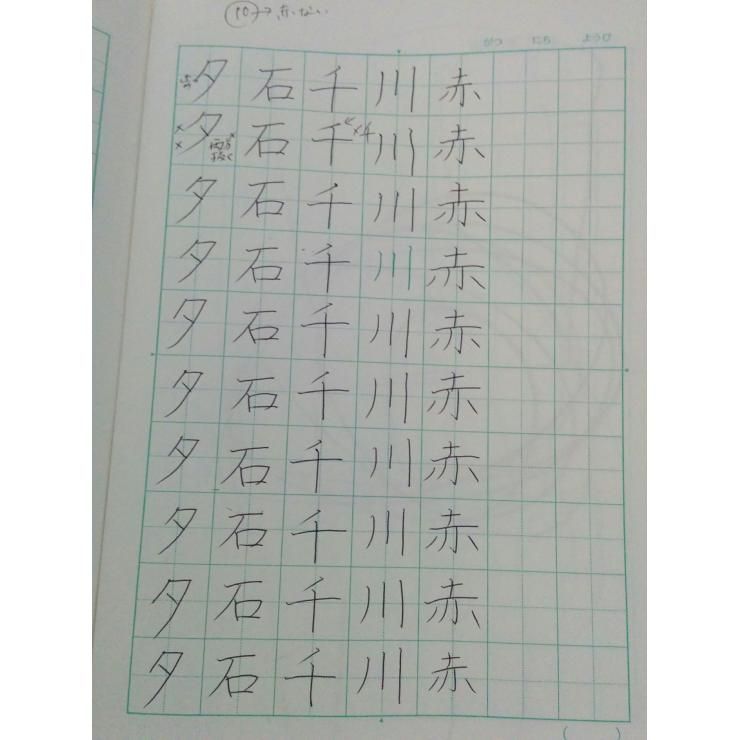 がつ にち ようび
夕 石 千 川 赤
夕 石 千 川 赤
夕 石 千 川 赤
夕 石 千 川 赤
夕 石 千 川 赤
夕 石 千 川 赤
夕 石 千 川 赤
夕 石 千 川 赤
夕 石 千 川 赤
夕 石 千 川 赤
( )